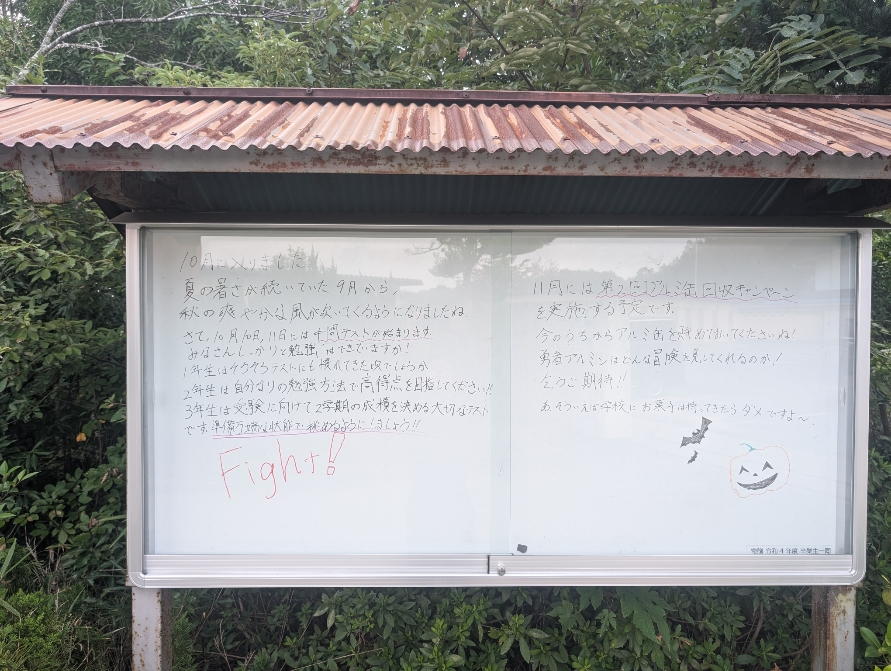 10月に入りました
夏の暑さが続いていた9月から、
秋の爽やかな風が吹いてくるようになりましたね
さて、10月10日,11日には中間テストが始まります
みなさんしっかりと勉強はできていますか？
1年生はそろそろテストにも慣れてきた頃でしょうか
2年生は自分なりの勉強方法で高得点を目指してください!!
3年生は受験に向けて2学期の成績を決める大切なテスト
です。準備万端な状態で挑めるようにしましょう!!
Fight!
11月には第2回アルミ缶回収キャンペーン
を実施する予定です。
今のうちからアルミ缶を貯めておいてくださいね!
勇者アルミンはどんな冒険を見してくれるのか!
乞うご期待!!
あ、そういえば学校にお菓子は持ってきたらダメですよ～
寄贈 令和4年度 卒業生一同